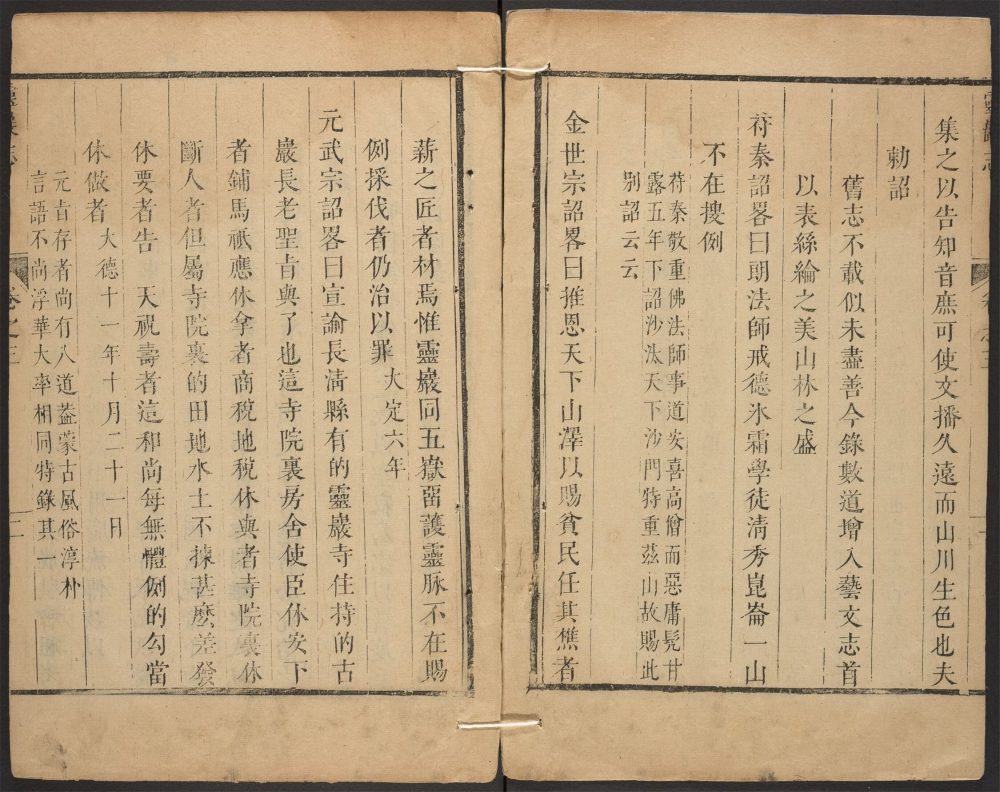 集之以告知音庶可使文播久遠而山川生色也夫
勅詔
舊志不載似未盡善今錄數道增入藝文志首
以表絲綸之美山林之盛
苻秦詔畧曰朗法師戒德氷霜學徒清秀崑崙一山
不在搜例
苻秦敬重佛法師事道安喜高僧而惡庸髠甘
露五年下詔沙汰天下沙門特重茲山故賜此
别詔云云
金世宗詔畧曰推恩天下山澤以賜貧民任其樵者
薪之匠者材焉惟靈巖同五嶽畱護靈脉不在賜
例採伐者仍治以罪大定六年
元武宗詔畧曰宣諭長清縣有的靈巖寺住持的古
巖長老聖旨與了也這寺院裏房舍使臣休安下
者鋪馬祇應休拿者商稅地稅休與者寺院裏休
斷人者但屬寺院裏的田地水土不揀甚麽差發
休要者告天祝壽者這和尚每無體例的勾當
休做者大德十一年十月二十一日
元旨存者尚有八道葢蒙古風俗淳朴
言語不尚浮華大率相同特錄其一
卷之三
二